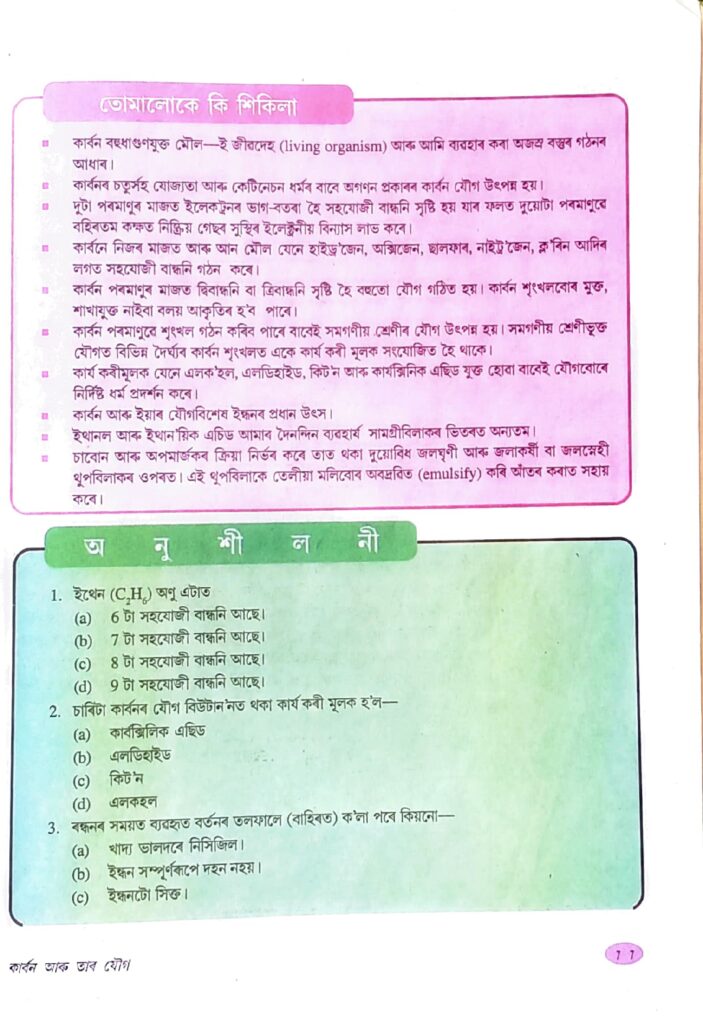 তোমালোকে কি শিকিলা
কাৰ্বন বহুধাগুণযুক্ত মৌল—ই জীৱদেহ (living organism) আৰু আমি ব্যৱহাৰ কৰা অজস্ৰ বস্তুৰ গঠনৰ
আধাৰ।
কাৰ্বনৰ চতুৰ্সহ যোজ্যতা আৰু কেটিনেচন ধৰ্মৰ বাবে অগণন প্ৰকাৰৰ কাৰ্বন যৌগ উৎপন্ন হয়।
দুটা পৰমাণুৰ মাজত ইলেকট্ৰনৰ ভাগ-বতৰা হৈ সহযোজী বান্ধনি সৃষ্টি হয় যাৰ ফলত দুয়োটা পৰমাণুৱে
বহিৰতম কক্ষত নিষ্ক্ৰিয় গেছৰ সুস্থিৰ ইলেক্ট্ৰনীয় বিন্যাস লাভ কৰে।
কাৰ্বনে নিজৰ মাজত আৰু আন মৌল যেনে হাইড্ৰ'জেন, অক্সিজেন, ছালফাৰ, নাইট্ৰ'জেন, ক্ল'ৰিন আদিৰ
লগত সহযোজী বান্ধনি গঠন কৰে।
কাৰ্বন পৰমাণুৰ মাজত দ্বিবান্ধনি বা ত্ৰিবান্ধনি সৃষ্টি হৈ বহুতো যৌগ গঠিত হয়। কাৰ্বন শৃংখলবোৰ মুক্ত,
শাখাযুক্ত নাইবা বলয় আকৃতিৰ হ'ব পাৰে।
কাৰ্বন পৰমাণুৱে শৃংখল গঠন কৰিব পাৰে বাবেই সমগণীয় শ্ৰেণীৰ যৌগ উৎপন্ন হয়। সমগণীয় শ্ৰেণীভূক্ত
যৌগত বিভিন্ন দৈৰ্ঘ্যৰ কাৰ্বন শৃংখলত একে কাৰ্য কৰী মূলক সংযোজিত হৈ থাকে।
কাৰ্য কৰীমূলক যেনে এলক'হল, এলডিহাইড, কিট'ন আৰু কাৰ্বক্সিনিক এছিড যুক্ত হোৱা বাবেই যৌগবোৰে
নিৰ্দিষ্ট ধৰ্ম প্ৰদৰ্শন কৰে।
কাৰ্বন আৰু ইয়াৰ যৌগবিশেষ ইন্ধনৰ প্ৰধান উৎস।
ইথানল আৰু ইথান'য়িক এচিড আমাৰ দৈনন্দিন ব্যৱহাৰ্য সামগ্ৰীবিলাকৰ ভিতৰত অন্যতম।
চাবোন আৰু অপমাৰ্জকৰ ক্ৰিয়া নিৰ্ভৰ কৰে তাত থকা দুয়োবিধ জলঘৃণী আৰু জলাকৰ্ষী বা জলস্নেহী
থূপবিলাকৰ ওপৰত। এই থূপবিলাকে তেলীয়া মলিবোৰ অবদ্ৰৱিত (emulsify) কৰি আঁতৰ কৰাত সহায়
কৰে।
অ নু শী ল নী
1. ইথেন (C₂H₆) অণু এটাত
(a) 6 টা সহযোজী বান্ধনি আছে।
(b) 7 টা সহযোজী বান্ধনি আছে।
(c) 8 টা সহযোজী বান্ধনি আছে।
(d) 9 টা সহযোজী বান্ধনি আছে।
2. চাৰিটা কাৰ্বনৰ যৌগ বিউটান'নত থকা কাৰ্য কৰী মূলক হ'ল—
(a) কাৰ্বক্সিলিক এছিড
(b) এলডিহাইড
(c) কিট'ন
(d) এলকহল
3. ৰন্ধনৰ সময়ত ব্যৱহৃত বৰ্তনৰ তলফালে (বাহিৰত) ক'লা পৰে কিয়নো—
(a) খাদ্য ভালদৰে নিসিজিল।
(b) ইন্ধন সম্পূৰ্ণৰূপে দহন নহয়।
(c) ইন্ধনটো সিক্ত।
কাৰ্বন আৰু তাৰ যৌগ
77